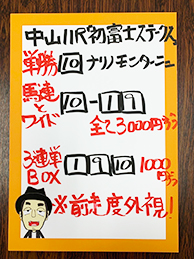 中山11R初富士ステクス
単勝 10 ナリノモンターニュ
馬連とワイド 10-1 9
全て3000円ずつ
3連単BOX 1 9 10 1000円ずつ
※前走度外視!